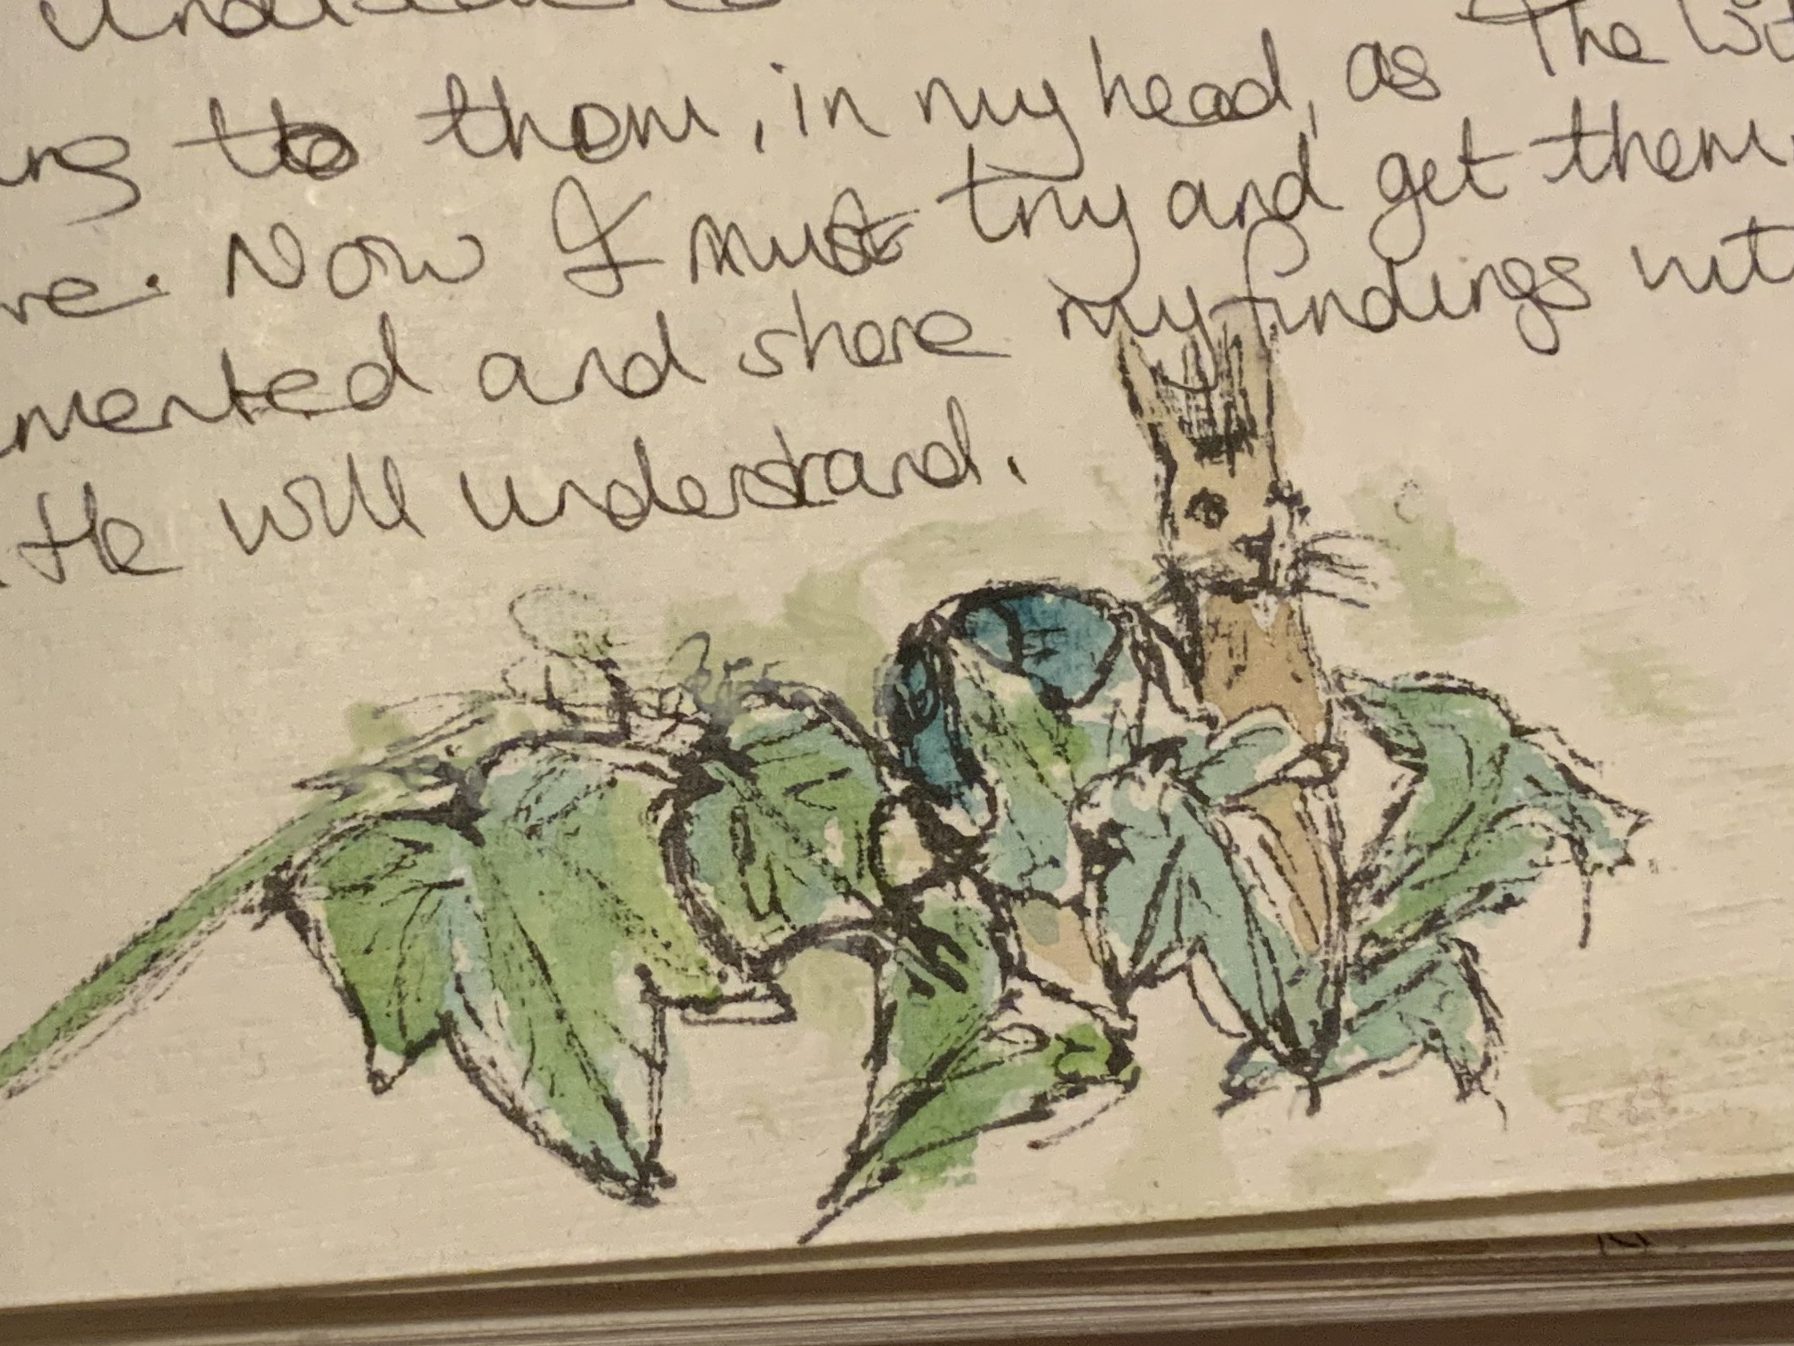 to them, in my head, as The
Now I must try and get them
mented and share my findings
He will understand.